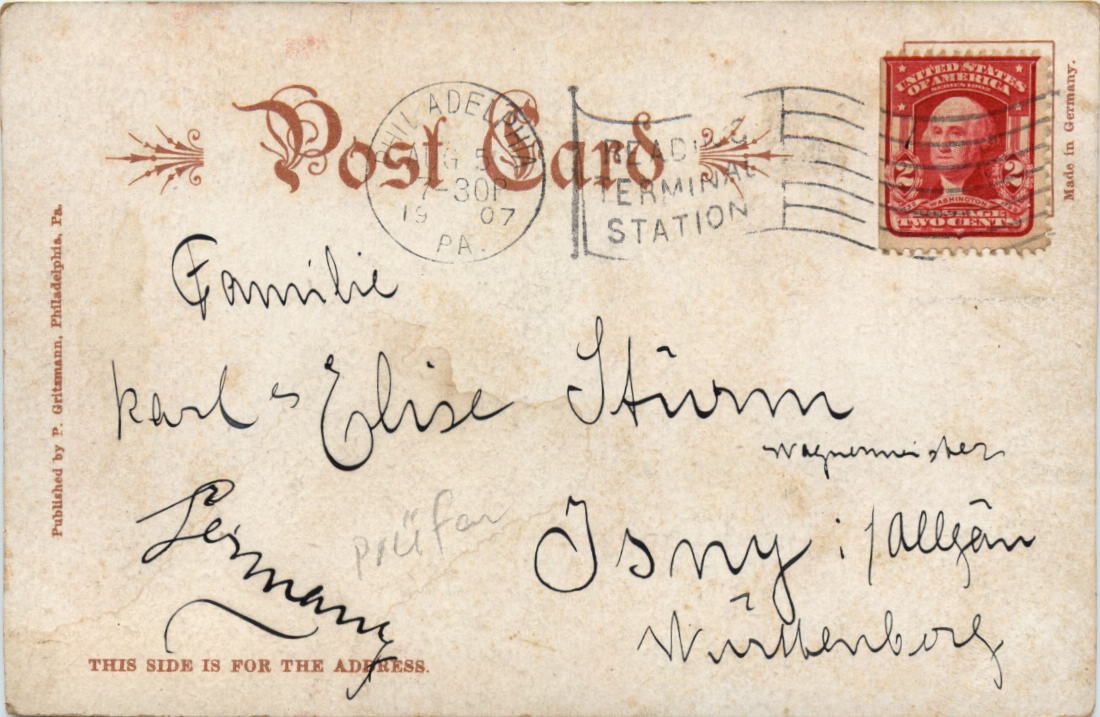 Post Card
PHILADELPHIA
AUG 5
7-30P
19 07
PA.
READING
TERMINAL
STATION
UNITED STATES
OF AMERICA
SERIES 1902
2 2
WASHINGTON
POSTAGE
TWO CENTS
Made in Germany.
Published by P. Gritzmann, Philadelphia, Pa.
Familie
Karl & Elise Stürm
Wagnermeister
Germany
Isny i/Allgäu
Württenberg
THIS SIDE IS FOR THE ADDRESS.